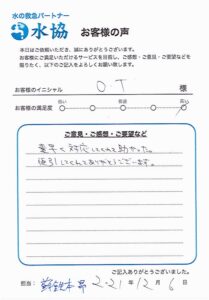 水の救急パートナー
水協 お客様の声
本日はご依頼いただき、誠にありがとうございます。
お客様にご満足いただけるサービスを目指し、ご感想・ご意見・ご要望などを
賜りたく、以下のご記入をよろしくお願い致します。
お客様のイニシャル O.T 様
お客様の満足度 低い 普通 高い
ご意見・ご感想・ご要望など
素早く対応してくれて助かった。
値引してくれてありがとうございます。
ご記入ありがとうございました。
担当: 2021年12月6日